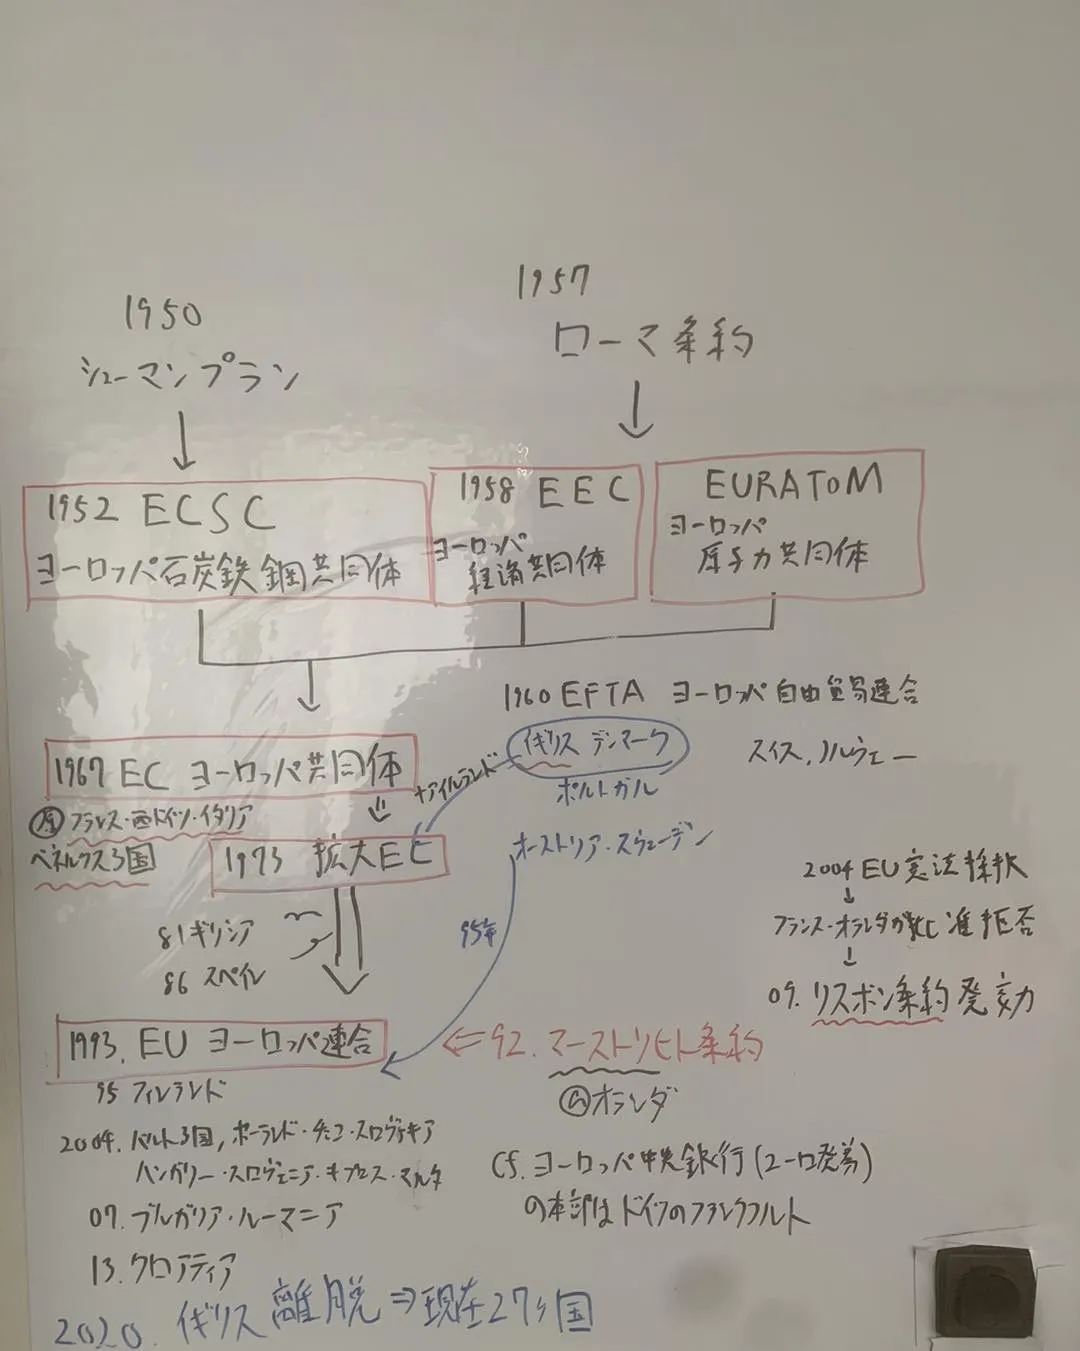 1950
シューマンプラン
1957
ローマ条約
1952 ECSC
ヨーロッパ石炭鉄鋼共同体
1958 EEC
ヨーロッパ
経済共同体
EURATOM
ヨーロッパ
原子力共同体
1960 EFTA ヨーロッパ自由貿易連合
イギリス デンマーク
スイス,ノルウェー
ポルトガル
オーストリア・スウェーデン
1967 EC ヨーロッパ共同体
+アイルランド
原 フランス・西ドイツ・イタリア
ベネルクス3国
1973 拡大EC
81 ギリシア
86 スペイン
95年
2004 EU憲法採択
フランス・オランダが批准拒否
09. リスボン条約発効
1993. EU ヨーロッパ連合
⇐92. マーストリヒト条約
オランダ
95 フィンランド
2004. バルト3国, ポーランド・チェコ・スロヴァキア
ハンガリー・スロヴェニア・キプロス・マルタ
07. ブルガリア・ルーマニア
13. クロアティア
cf. ヨーロッパ中央銀行(ユーロ発券)
の本部はドイツのフランクフルト
2020. イギリス離脱⇒現在27ヶ国